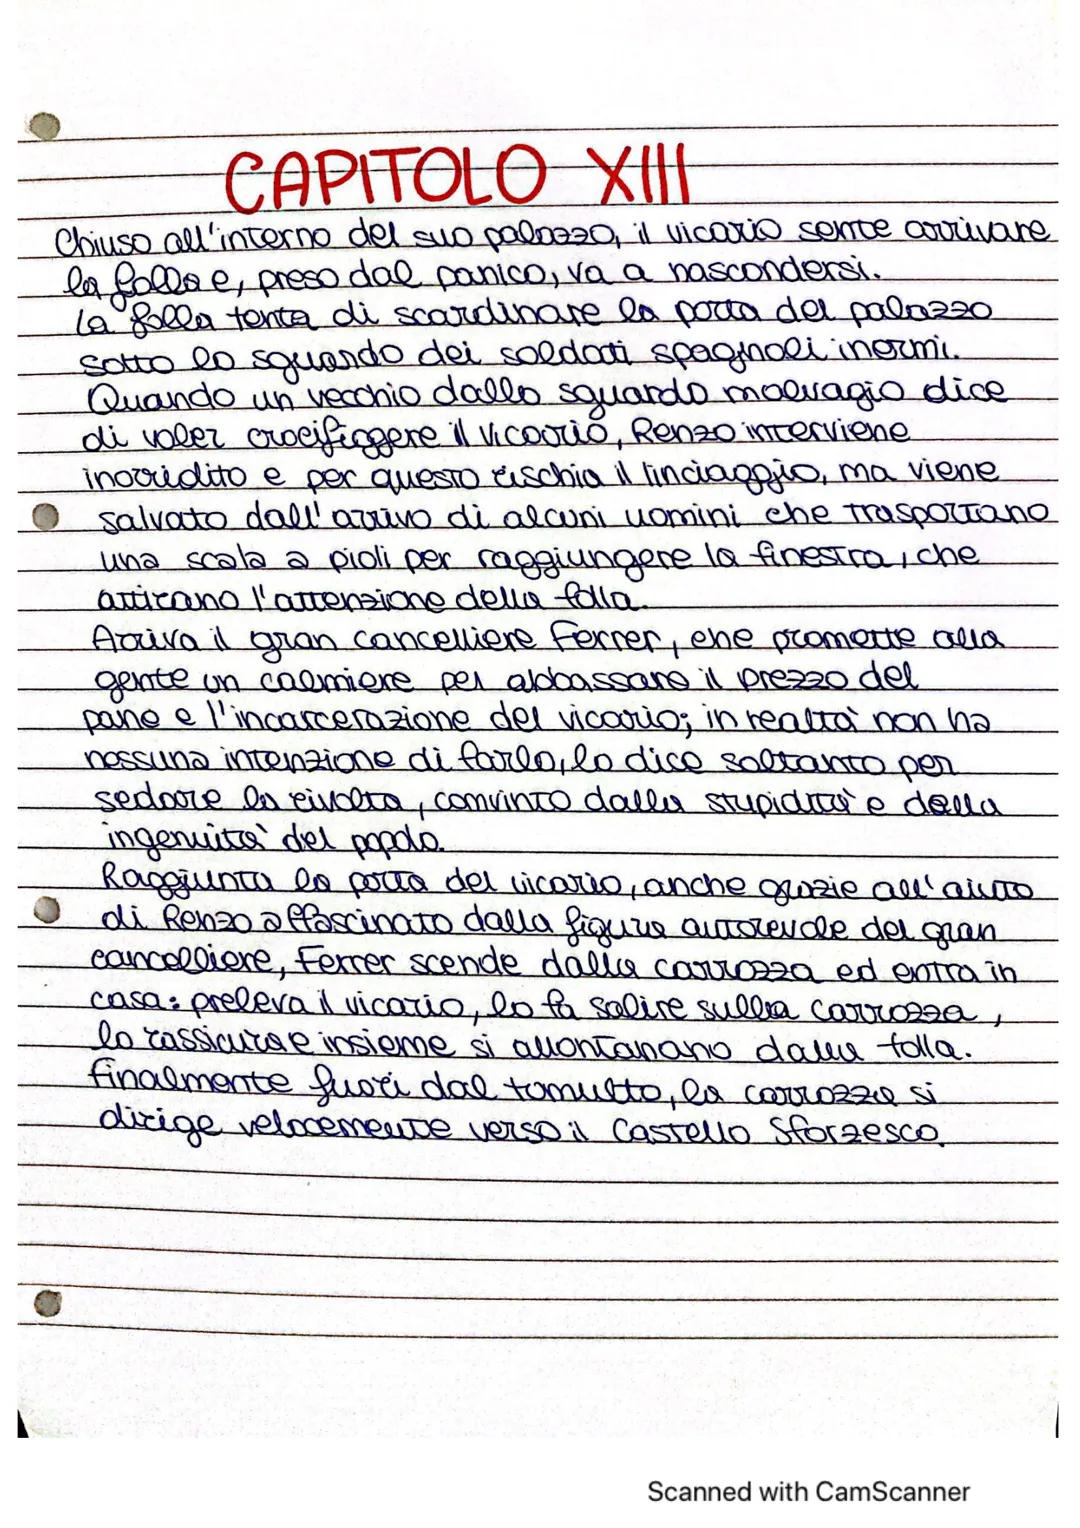 CAPITOLO XIII
Chiuso all'interno del suo palazzo, il vicario sente arrivare
la folla e, preso dal panico, va a nascondersi.
La folla tenta di scardinare la porta del palazzo
sotto lo sguardo dei soldati spagnoli inermi.
Quando un vecchio dallo sguardo malvagio dice
di voler crocifiggere il vicario, Renzo interviene
inorridito e per questo rischia il linciaggio, ma viene
salvato dall'arrivo di alcuni uomini che trasportano
una scala a pioli per raggiungere la finestra, che
attirano l'attenzione della folla.
Arriva il gran cancelliere Ferrer, che promette alla
gente un calmiere per abbassare il prezzo del
pane e l'incarcerazione del vicario; in realtà non ha
nessuna intenzione di farlo, lo dice soltanto per
sedare la rivolta, convinto della stupidità e della
ingenuità del popolo.
Raggiunta la porta del vicario, anche grazie all'aiuto
di Renzo affascinato dalla figura autorevole del gran
cancelliere, Ferrer scende dalla carrozza ed entra in
casa: preleva il vicario, lo fa salire sulla carrozza,
lo rassicura e insieme si allontanano dalla folla.
Finalmente fuori dal tomulto, la carrozza si
dirige velocemente verso il Castello Sforzesco.
Scanned with CamScanner